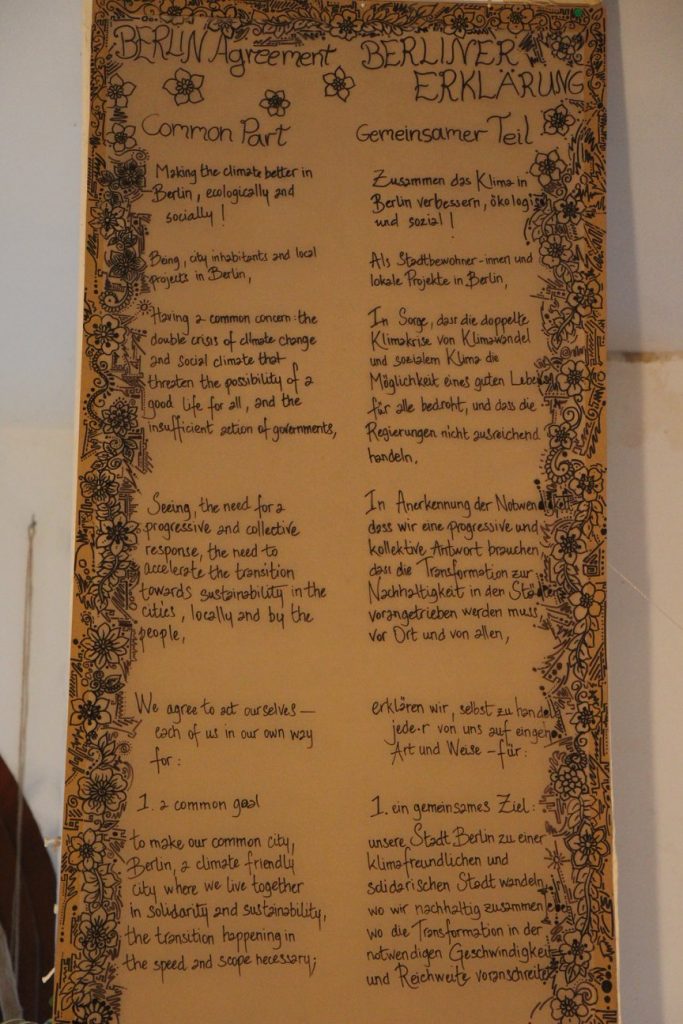 BERLIN Agreement
Common Part
Making the climate better in
Berlin, ecologically and
socially!
Being, city inhabitants and local
projects in Berlin,
Having a common concern: the
double crisis of climate change
and social climate that
threaten the possibility of a
good life for all, and the
insufficient action of governments,
Seeing, the need for a
progressive and collective
response, the need to
accelerate the transition
towards sustainability in the
cities, locally and by the
people,
We agree to act ourselves –
each of us in our own way
for:
1. a common goal
to make our common city,
Berlin, a climate friendly
city where we live together
in solidarity and sustainability,
the transition happening in
the speed and scope necessary;
BERLINER
ERKLÄRUNG
Gemeinsamer Teil
Zusammen das Klima in
Berlin verbessern, ökologisch
und sozial!
Als Stadtbewohner·innen und
lokale Projekte in Berlin,
In Sorge, dass die doppelte
Klimakrise von Klimawandel
und sozialem Klima die
Möglichkeit eines guten Lebens
für alle bedroht, und dass die
Regierungen nicht ausreichend
handeln,
In Anerkennung der Notwendigkeit,
dass wir eine progressive und
kollektive Antwort brauchen,
dass die Transformation zur
Nachhaltigkeit in den Städten
vorangetrieben werden muss,
vor Ort und von allen,
erklären wir, selbst zu handeln
jede·r von uns auf eigene
Art und Weise – für:
1. ein gemeinsames Ziel:
unsere Stadt Berlin zu einer
klimafreundlichen und
solidarischen Stadt wandeln,
wo wir nachhaltig zusammen leben
wo die Transformation in der
notwendigen Geschwindigkeit
und Reichweite voranschreitet